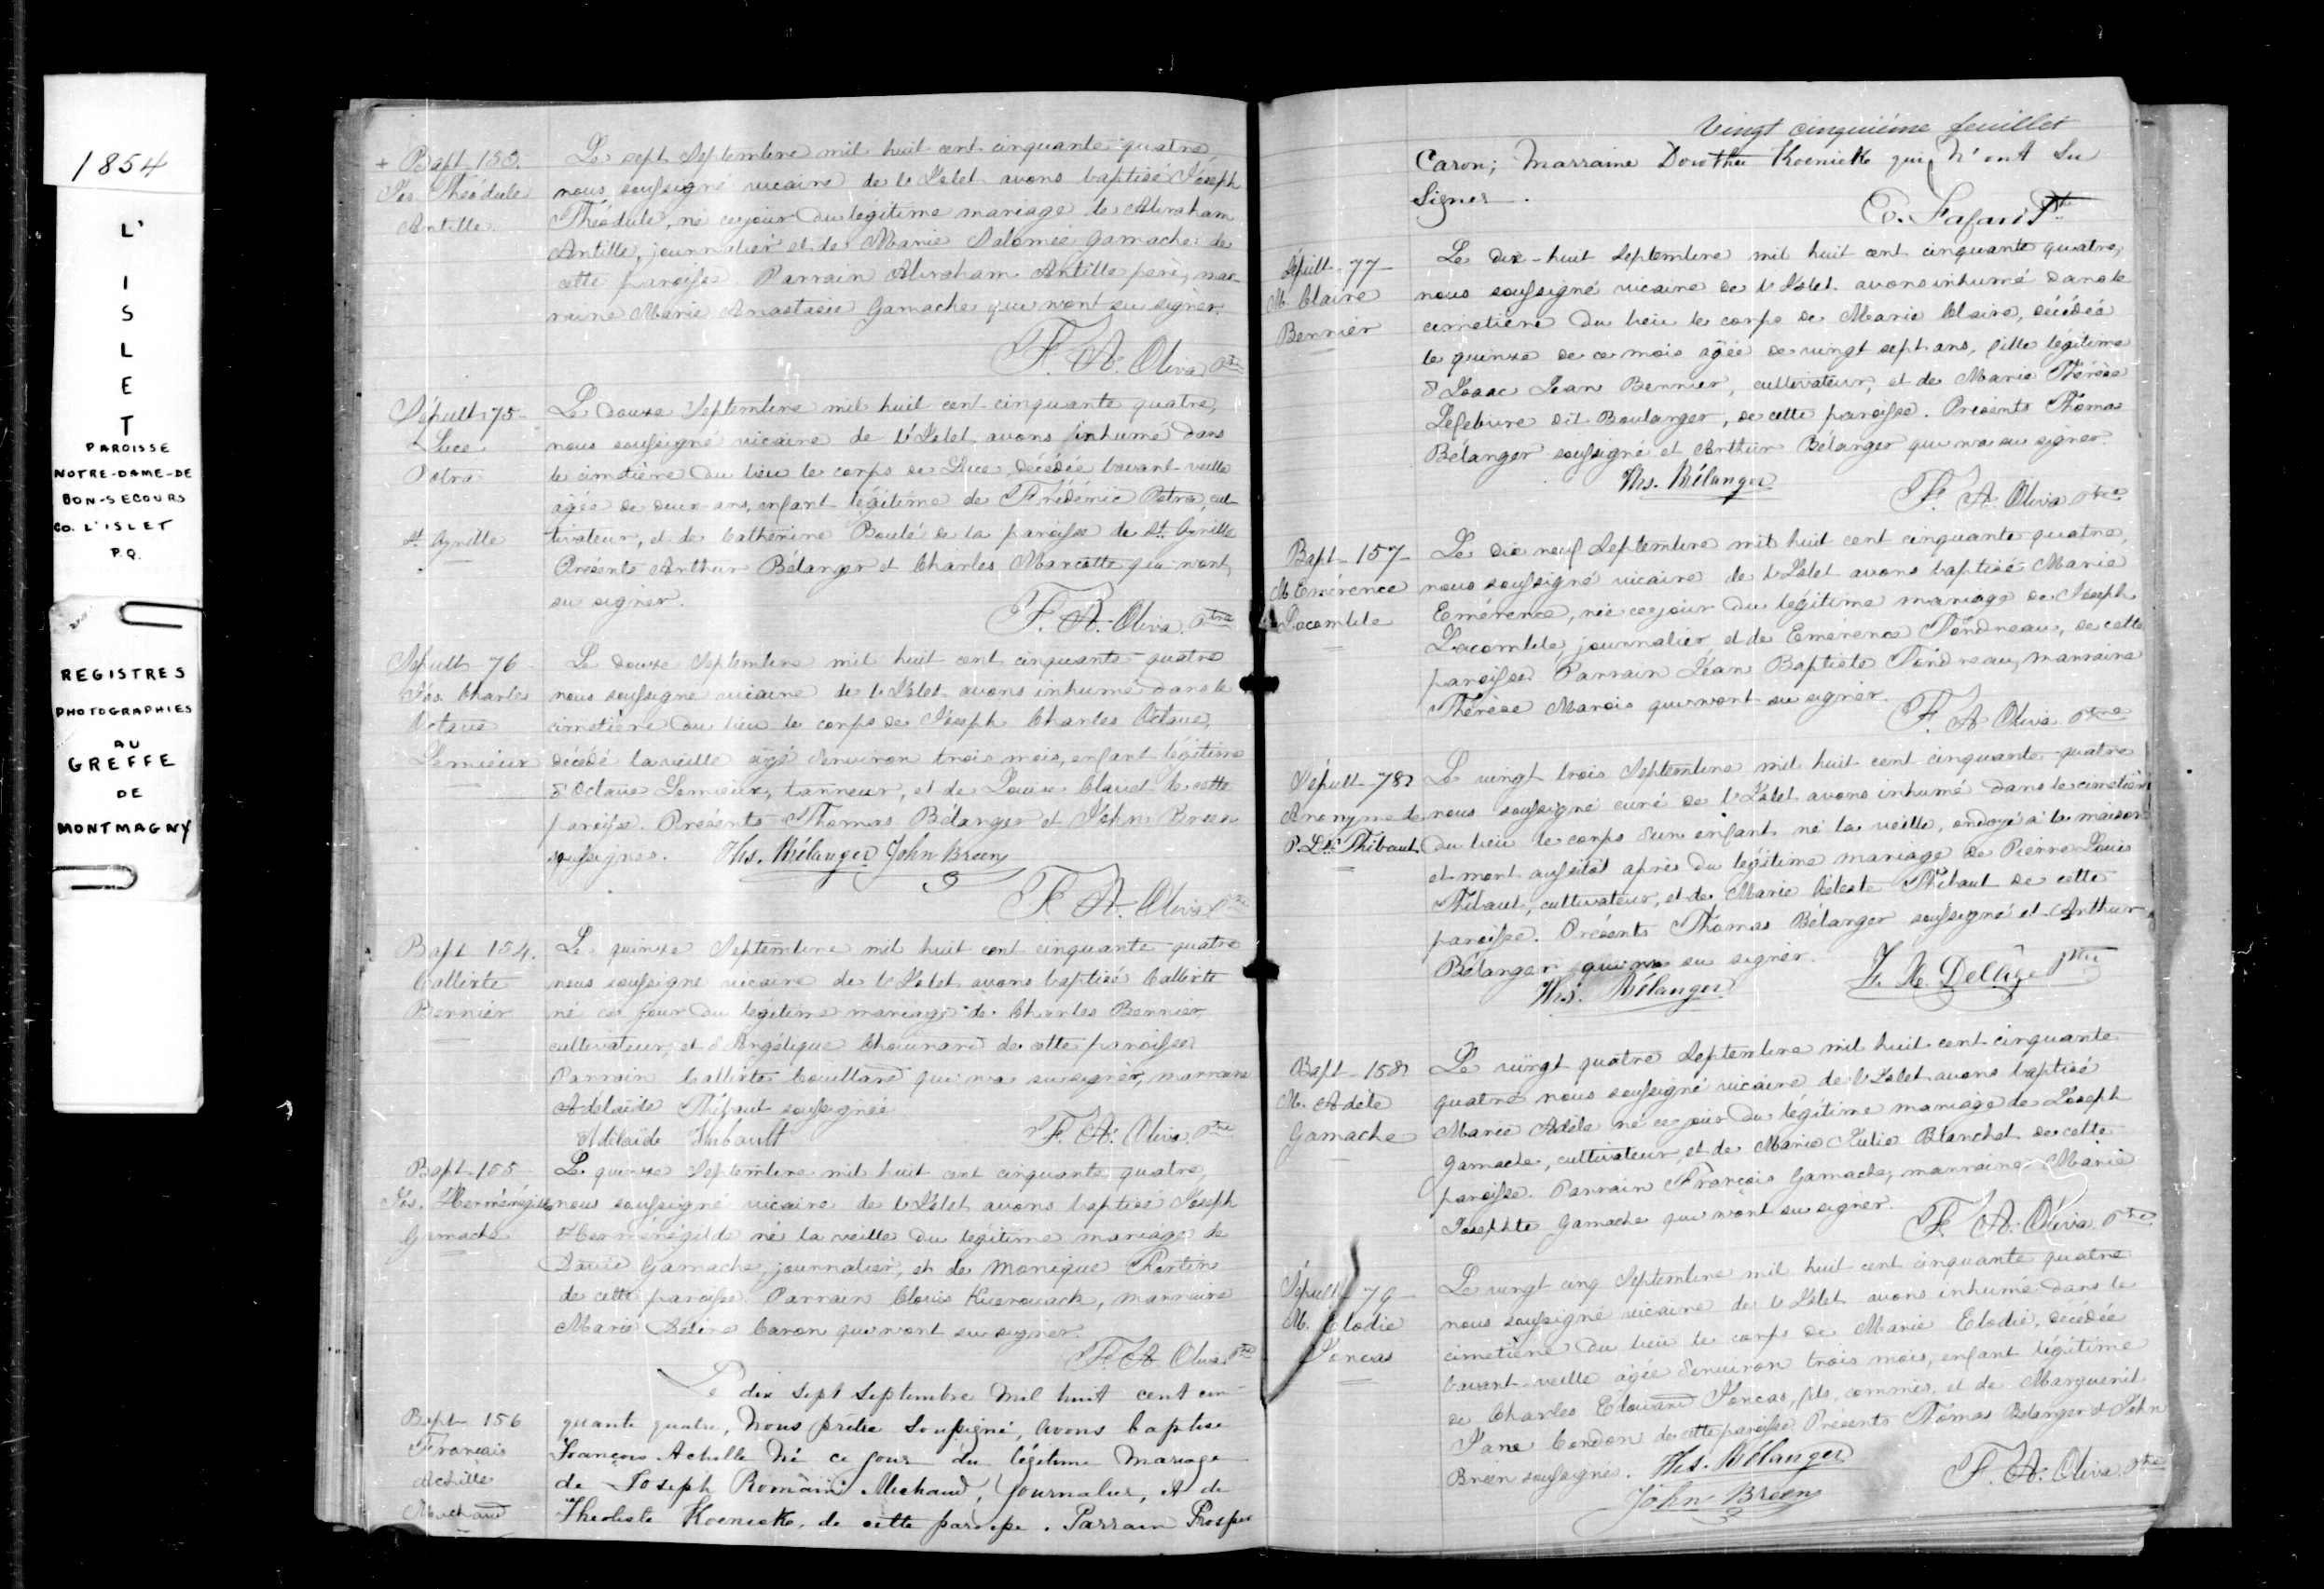 1854
L'
I
S
L
E
T
PAROISSE
NOTRE-DAME-DE
BON-SECOURS
CO. L'ISLET
P.Q.
REGISTRES
PHOTOGRAPHIES
AU
GREFFE
DE
MONTMAGNY
+ Bapt. 153.
Jos. Théodule
Antille
Le sept Septembre mil huit cent cinquante quatre
nous soussigné vicaire de l'Islet avons baptisé Joseph
Théodule, né ce jour du légitime mariage de Abraham
Antille, journalier et de Marie Salomée Gamache de
cette paroisse Parrain Abraham Antille père, mar-
raine Marie Anastasie Gamache qui n'ont su signer.
F. A. Oliva Ptre
Sépult 75
Luce
St. Cyrille
Le douze Septembre mil huit cent cinquante quatre,
nous soussigné vicaire de l'Islet avons inhumé dans
le cimetière du lieu le corps de Luce décédée l'avant-veille
âgée de deux ans, enfant légitime de cul-
tivateur, et de Catherine Boulé de la paroisse de St. Cyrille
Présents Arthur Bélanger et Charles Marcotte qui n'ont
su signer.
F. A. Oliva Ptre
Sépult 76
Jos. Charles
Octave
Lemieux
Le douze Septembre mil huit cent cinquante quatre
nous soussigné vicaire de l'Islet avons inhumé dans le
cimetière du lieu le corps de Joseph Charles Octave,
décédé la veille âgé d'environ trois mois, enfant légitime
d'Octave Lemieux, tanneur, et de Louise de cette
paroisse. Présents Thomas Bélanger et John Breen
soussignés. Ths. Bélanger John Breen
F. A. Oliva Ptre
Bapt 154.
Callixte
Bernier
Le quinze Septembre mil huit cent cinquante quatre
nous soussigné vicaire de l'Islet avons baptisé Callixte
né ce jour du légitime mariage de Charles Bernier,
cultivateur, et d'Angélique Chouinard de cette paroisse.
Parrain Callixte Couillard qui n'a su signer, marraine
Adélaïde Thibaut soussignée
Adelaide Thibault F. A. Oliva Ptre
Bapt 155
Jos. Herménégilde
Gamache
Le quinze Septembre mil huit cent cinquante quatre,
nous soussigné vicaire de l'Islet avons baptisé Joseph
Herménégilde né la veille du légitime mariage de
David Gamache, journalier, et de Monique Fortin
de cette paroisse. Parrain Clovis Kuerouack, marraine
Marie Caron qui n'ont su signer.
F. A. Oliva Ptre
Bapt 156
Francais
Achille
Michaud
Le dix Sept Septembre Mil huit cent cin-
quante quatre, Nous prêtre Soussigné, avons baptisé
François Achille Né ce jour du légitime Mariage
de Joseph Romain Michaud, journalier, et de
Theoliste Koenicke, de cette paroisse. Parrain Prosper
Vingt cinquième feuillet
Caron; Marraine Dorothée Koenicke qui N'ont Su
Signer.
Sépult 77
M. Claire
Bernier
Le dix-huit Septembre mil huit cent cinquante quatre,
nous soussigné vicaire de l'Islet avons inhumé dans le
cimetière du lieu le corps de Marie Claire, décédée
le quinze de ce mois âgée de vingt sept ans, fille légitime
d'Isaac Jean Bernier, cultivateur, et de Marie Thérèse
Lefebvre dit Boulanger, de cette paroisse. Présents Thomas
Bélanger soussigné et Arthur Bélanger qui n'a su signer.
Ths. Bélanger
F. A. Oliva Ptre
Bapt 157
M. Emérence
Lacomble
Le dix neuf Septembre mil huit cent cinquante quatre,
nous soussigné vicaire de l'Islet avons baptisé Marie
Emérence, née ce jour du légitime mariage de Joseph
Lacomble, journalier et de Emérence Tondreau, de cette
paroisse. Parrain Jean Baptiste Tondreau, marraine
Thérèse Marois qui n'ont su signer.
F. A. Oliva Ptre
Sépult 78
Anonyme de
P. Ls. Thibaut
Le vingt trois Septembre mil huit cent cinquante quatre
nous soussigné curé de l'Islet avons inhumé dans le cimetière
du lieu le corps d'un enfant né la veille, ondoyé à la maison
et mort aussitôt après du légitime mariage de Pierre Louis
Thibaut, cultivateur, et de Marie Céleste Thibaut de cette
paroisse. Présents Thomas Bélanger soussigné et Arthur
Bélanger qui n'a su signer.
Ths. Bélanger
F. X. Delâge Ptre
Bapt 158
M. Adèle
Gamache
Le vingt quatre Septembre mil huit cent cinquante
quatre nous soussigné vicaire de l'Islet avons baptisé
Marie Adèle né ce jour du légitime mariage de Joseph
Gamache, cultivateur, et de Marie Julie Blanchet de cette
paroisse. Parrain François Gamache, marraine Marie
Josephte Gamache qui n'ont su signer.
F. A. Oliva Ptre
Sépult 79
M. Elodie
Joncas
Le vingt cinq Septembre mil huit cent cinquante quatre
nous soussigné vicaire de l'Islet avons inhumé dans le
cimetière du lieu le corps de Marie Elodie, décédée
l'avant-veille âgée d'environ trois mois, enfant légitime
de Charles Edouard Joncas, fils, commis, et de Marguerite
Jane Condon de cette paroisse Présents Thomas Bélanger & John
Breen soussignés. Ths. Bélanger
John Breen
F. A. Oliva Ptre